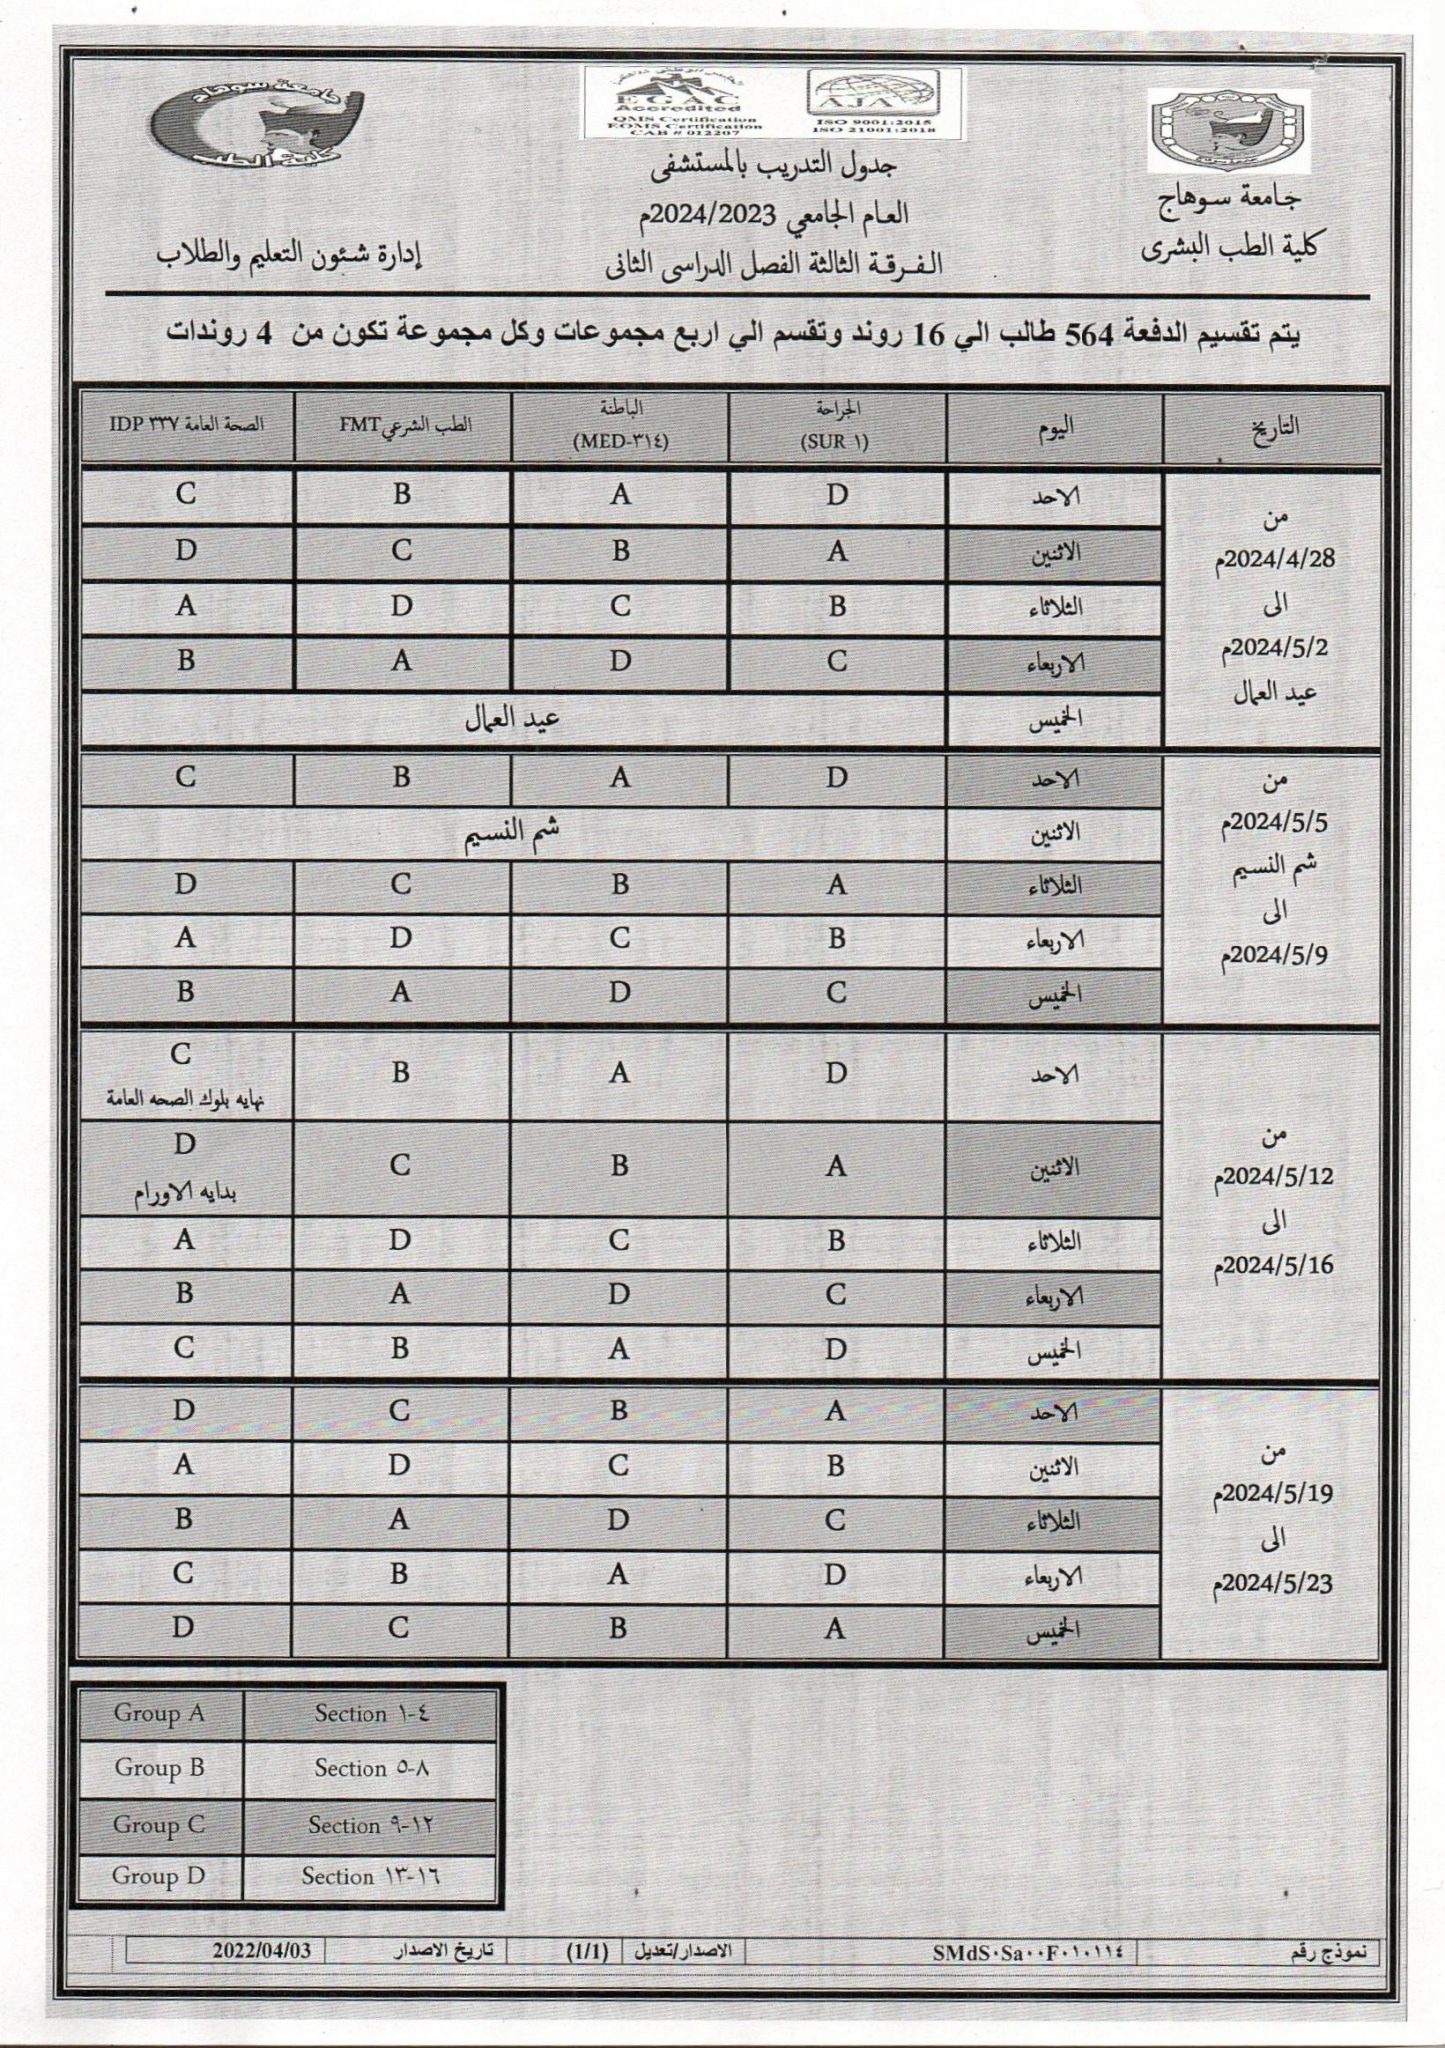 جامعة سوهاج
كلية الطب
EGAC
Accredited
QMS Certification
EOMS Certification
CAB # 012207
AJA
ISO 9001:2015
ISO 21001:2018
جامعة سوهاج
كلية الطب البشرى
جدول التدريب بالمستشفى
العام الجامعي 2024/2023م
الفرقة الثالثة الفصل الدراسى الثانى
إدارة شئون التعليم والطلاب
يتم تقسيم الدفعة 564 طالب الي 16 روند وتقسم الي اربع مجموعات وكل مجموعة تكون من 4 روندات
التاريخ اليوم الجراحة (SUR ١) الباطنة (MED-٣١٤) الطب الشرعي FMT الصحة العامة IDP ٣٣٧
من
2024/4/28م
الى
2024/5/2م
عيد العمال
الاحد D A B C
الاثنين A B C D
الثلاثاء B C D A
الاربعاء C D A B
الخميس عيد العمال
من
2024/5/5م
شم النسيم
الى
2024/5/9م
الاحد D A B C
الاثنين شم النسيم
الثلاثاء A B C D
الاربعاء B C D A
الخميس C D A B
من
2024/5/12م
الى
2024/5/16م
الاحد D A B C
نهايه بلوك الصحه العامة
الاثنين A B C D
بدايه الاورام
الثلاثاء B C D A
الاربعاء C D A B
الخميس D A B C
من
2024/5/19م
الى
2024/5/23م
الاحد A B C D
الاثنين B C D A
الثلاثاء C D A B
الاربعاء D A B C
الخميس A B C D
Group A Section ١-٤
Group B Section ٥-٨
Group C Section ٩-١٢
Group D Section ١٣-١٦
نموذج رقم SMdS٠Sa٠٠F٠١٠١١٤ الاصدار/تعديل (1/1) تاريخ الاصدار 2022/04/03